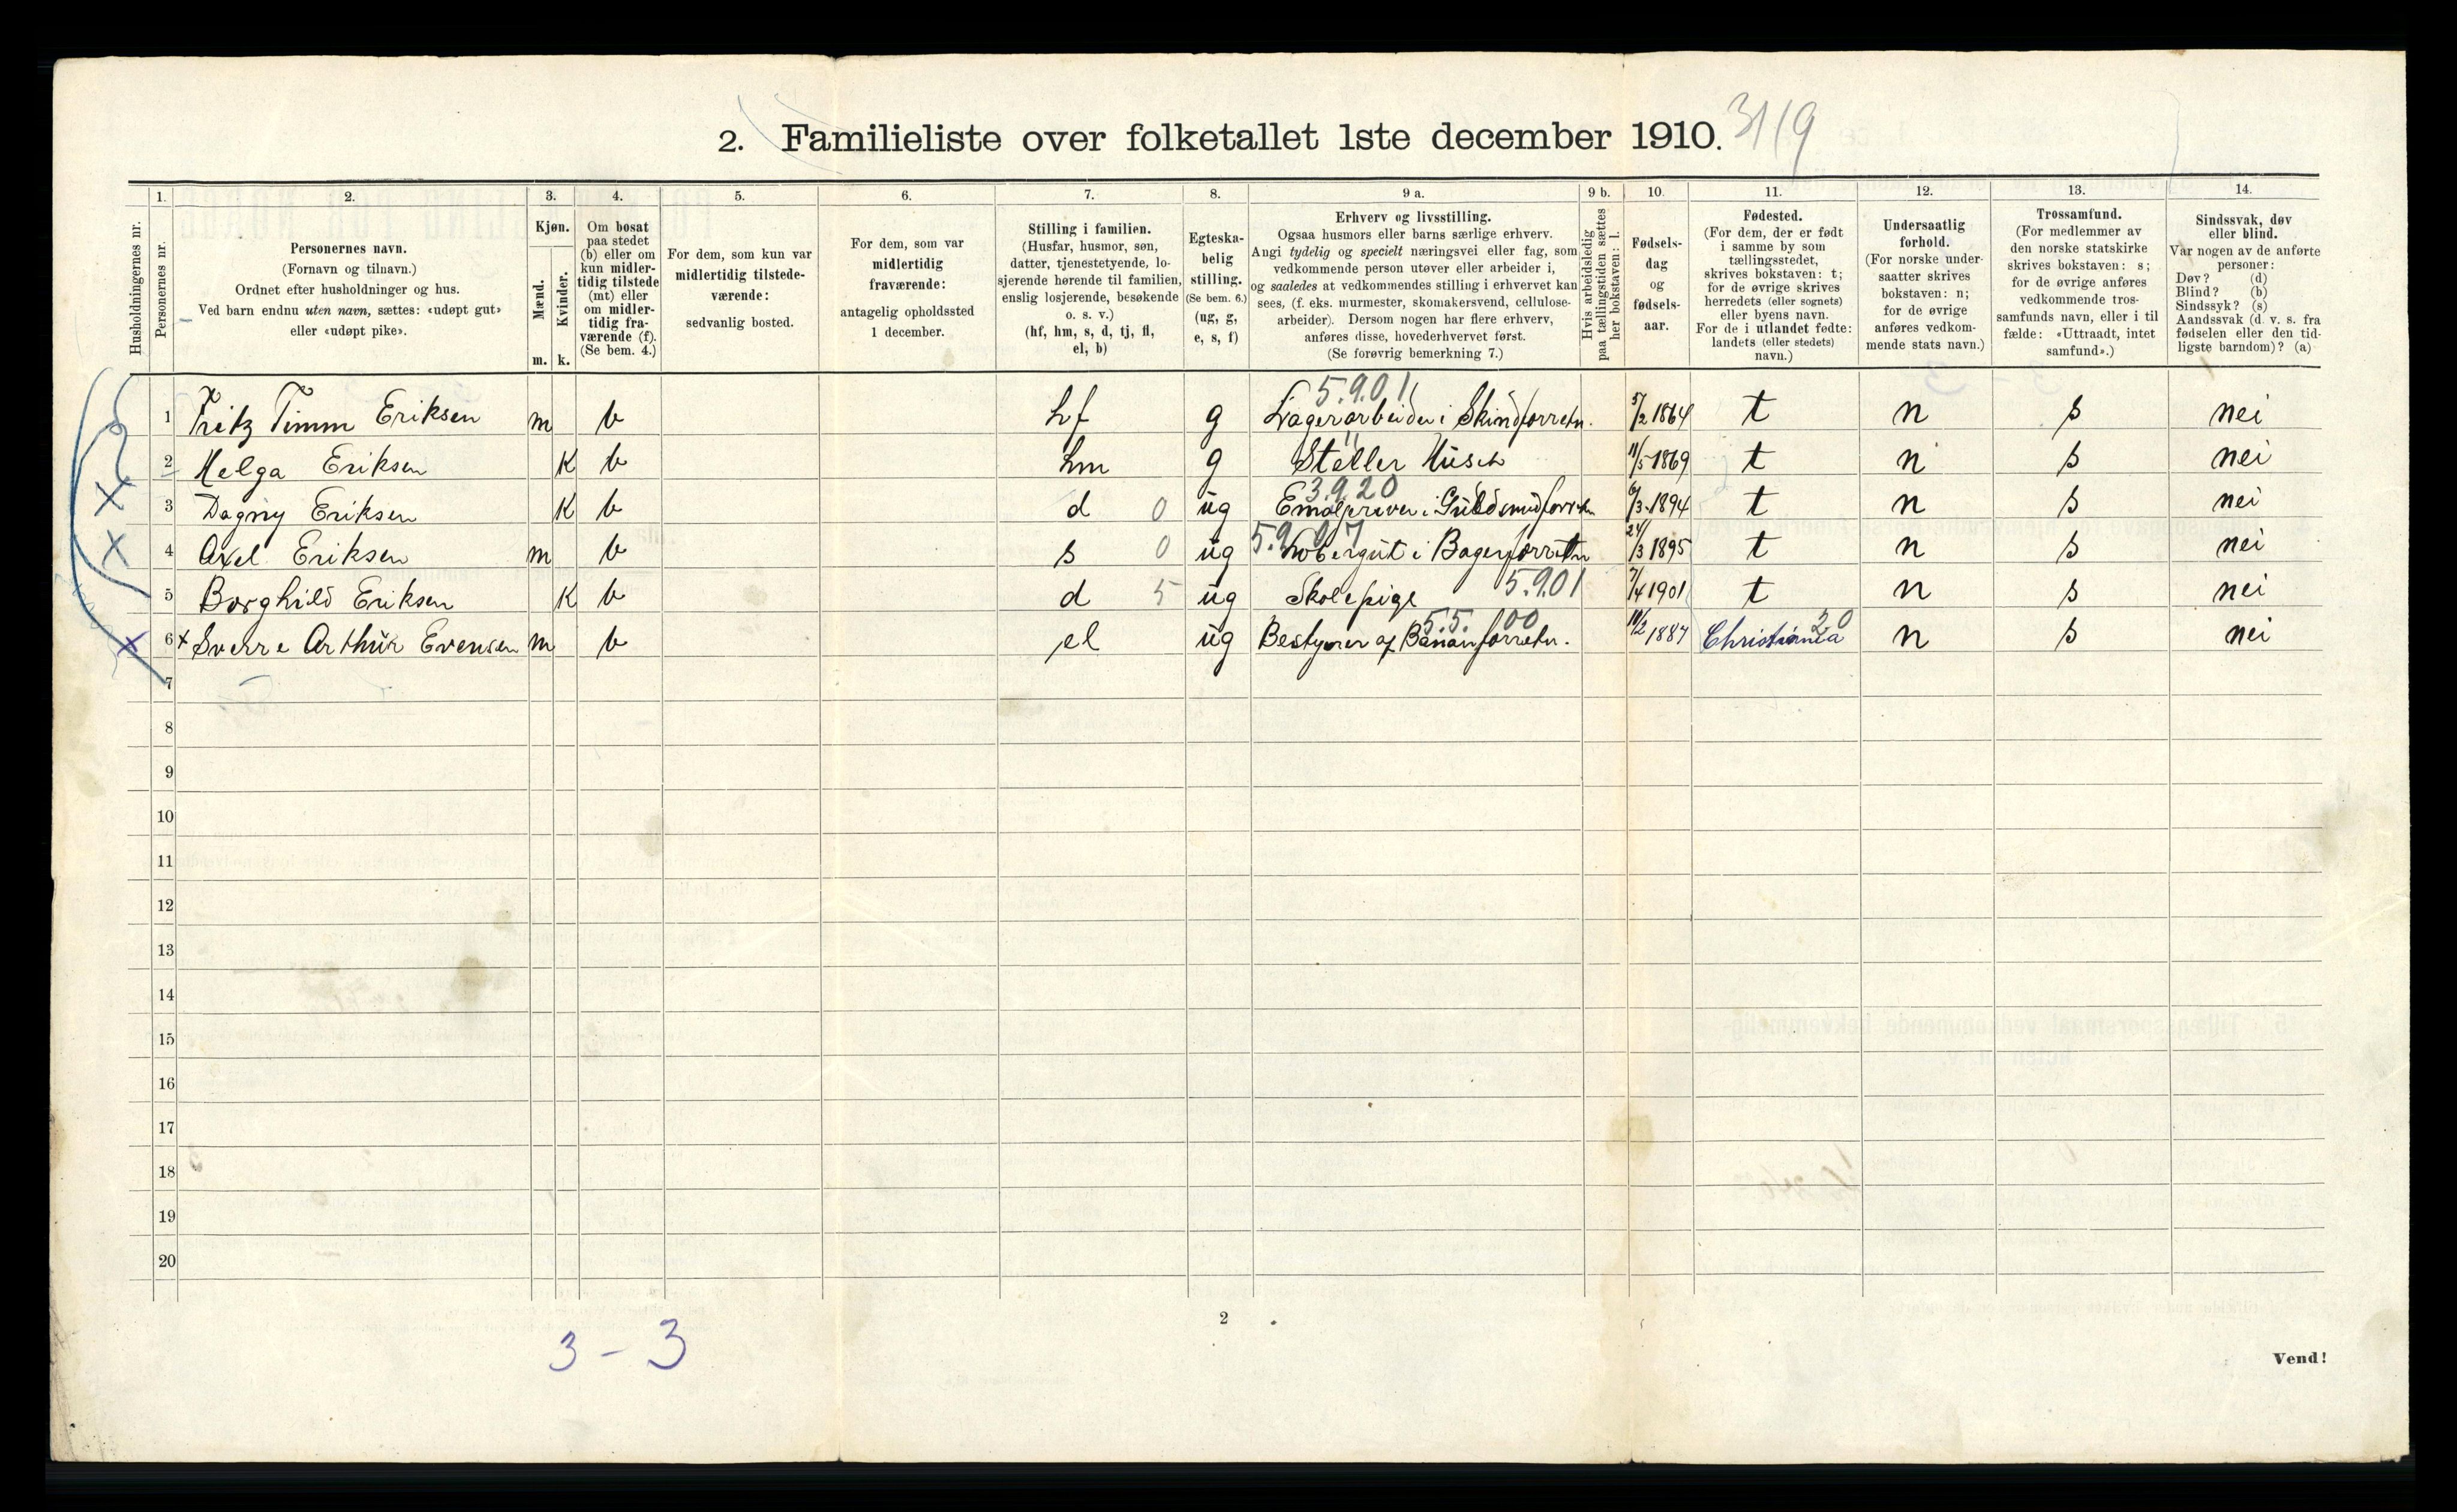 2. Familieliste over folketallet 1ste december 1910. 31/9
Husholdningernes nr.
1. Personernes nr.
2. Personernes navn.
(Fornavn og tilnavn.)
Ordnet efter husholdninger og hus.
Ved barn endnu uten navn, sættes: «udøpt gut»
eller «udøpt pike».
3. Kjøn.
Mænd. m.
Kvinder. k.
4. Om bosat
paa stedet
(b) eller om
kun midler-
tidig tilstede
(mt) eller
om midler-
tidig fra-
værende (f).
(Se bem. 4.)
5. For dem, som kun var
midlertidig tilstede-
værende:
sedvanlig bosted.
6. For dem, som var
midlertidig
fraværende:
antagelig opholdssted
1 december.
7. Stilling i familien.
(Husfar, husmor, søn,
datter, tjenestetyende, lo-
sjerende hørende til familien,
enslig losjerende, besøkende
o. s. v.)
(hf, hm, s, d, tj, fl,
el, b)
8. Egteska-
belig
stilling.
(Se bem. 6.)
(ug, g,
e, s, f)
9 a. Erhverv og livsstilling.
Ogsaa husmors eller barns særlige erhverv.
Angi tydelig og specielt næringsvei eller fag, som
vedkommende person utøver eller arbeider i,
og saaledes at vedkommendes stilling i erhvervet kan
sees, (f. eks. murmester, skomakersvend, cellulose-
arbeider). Dersom nogen har flere erhverv,
anføres disse, hovederhvervet først.
(Se forøvrig bemerkning 7.)
9 b. Hvis arbeidsledig
paa tællingstiden sættes
her bokstaven: l.
10. Fødsels-
dag
og
fødsels-
aar.
11. Fødested.
(For dem, der er født
i samme by som
tællingsstedet,
skrives bokstaven: t;
for de øvrige skrives
herredets (eller sognets)
eller byens navn.
For de i utlandet fødte:
landets (eller stedets)
navn.)
12. Undersaatlig
forhold.
(For norske under-
saatter skrives
bokstaven: n;
for de øvrige
anføres vedkom-
mende stats navn.)
13. Trossamfund.
(For medlemmer av
den norske statskirke
skrives bokstaven: s;
for de øvrige anføres
vedkommende tros-
samfunds navn, eller i til
fælde: «Uttraadt, intet
samfund».)
14. Sindssvak, døv
eller blind.
Var nogen av de anførte
personer:
Døv? (d)
Blind? (b)
Sindssyk? (s)
Aandssvak (d. v. s. fra
fødselen eller den tid-
ligste barndom)? (a)
5.9.01
1 Fritz Timm Eriksen m b hf g Lagerarbeider i Skindforretn. 5/2 1864 t n s nei
2 Helga Eriksen K b hm g Steller Huset 11/5 1869 t n s nei
3.9.20
3 Dagny Eriksen K b d 0 ug i Guldsmedforretn 6/3 1894 t n s nei
4 Axel Eriksen m b s 0 ug i Bagerforretn 24/3 1895 t n s nei
5 Borghild Eriksen K b d 5 ug Skolepige 5.9.01 7/4 1901 t n s nei
5.5.00 20
6 x Sverre Arthur Evensen m b el ug Bestyrer af Bananforretn. 11/2 1887 Christiania n s nei
7
8
9
10
11
12
13
14
15
16
17
18
19
20
2
3 - 3
Vend!